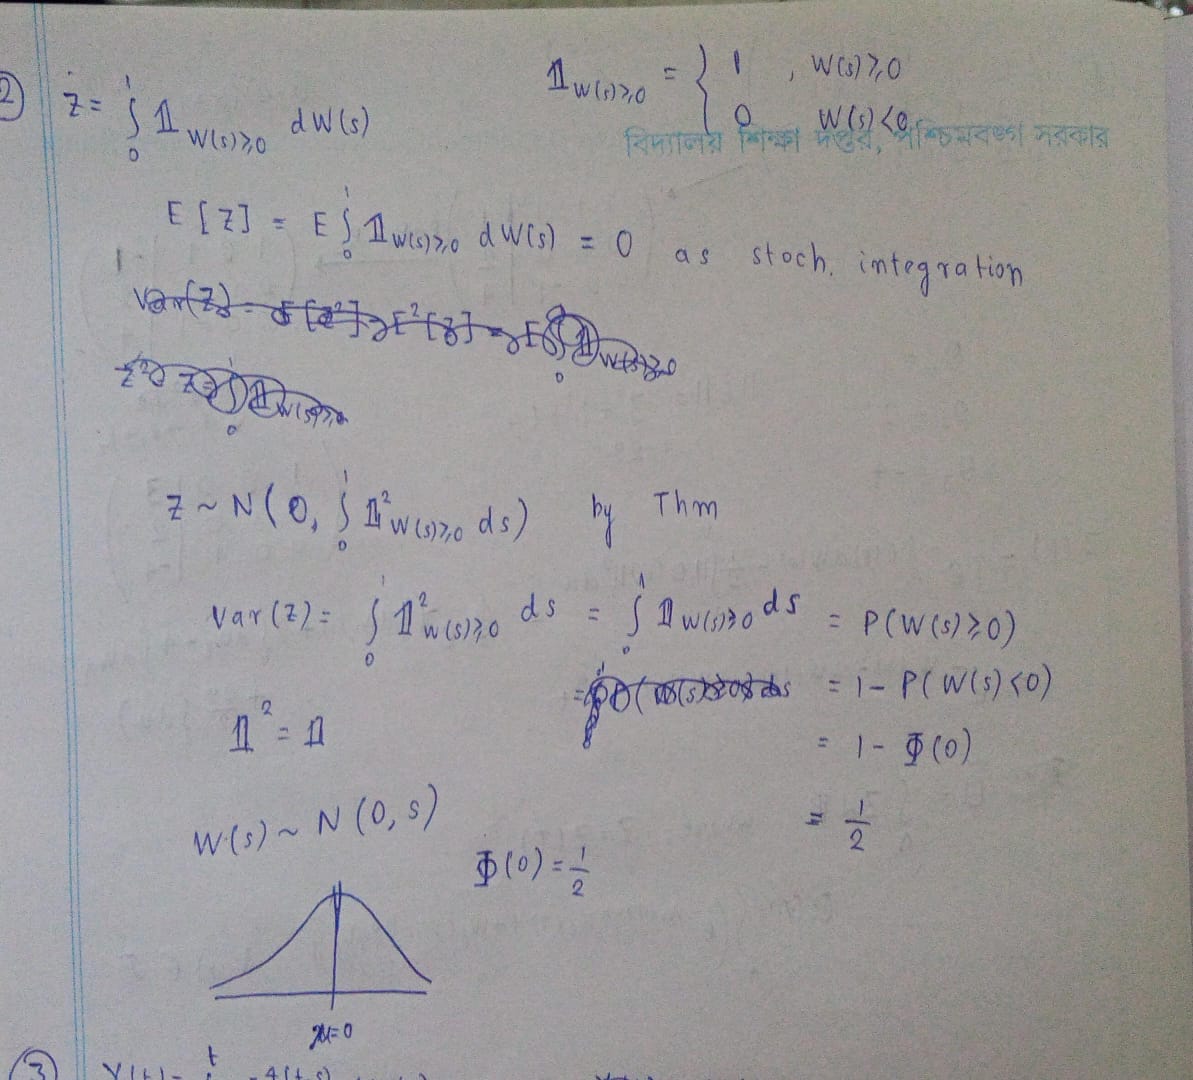 2
Z = ∫₀¹ 𝟙_{W(s)≥0} dW(s)
𝟙_{W(s)≥0} = { 1 , W(s)≥0
0 W(s)<0
বিদ্যালয় শিক্ষা দপ্তর, পশ্চিমবঙ্গ সরকার
E[Z] = E ∫₀¹ 𝟙_{W(s)≥0} dW(s) = 0 as stoch. integration
Z ~ N(0, ∫₀¹ 𝟙²_{W(s)≥0} ds) by Thm
Var(Z) = ∫₀¹ 𝟙²_{W(s)≥0} ds = ∫₀¹ 𝟙_{W(s)≥0} ds = P(W(s)≥0)
= 1 - P(W(s)<0)
𝟙² = 𝟙
= 1 - Φ(0)
W(s) ~ N(0,s)
= 1/2
Φ(0) = 1/2
x=0
3